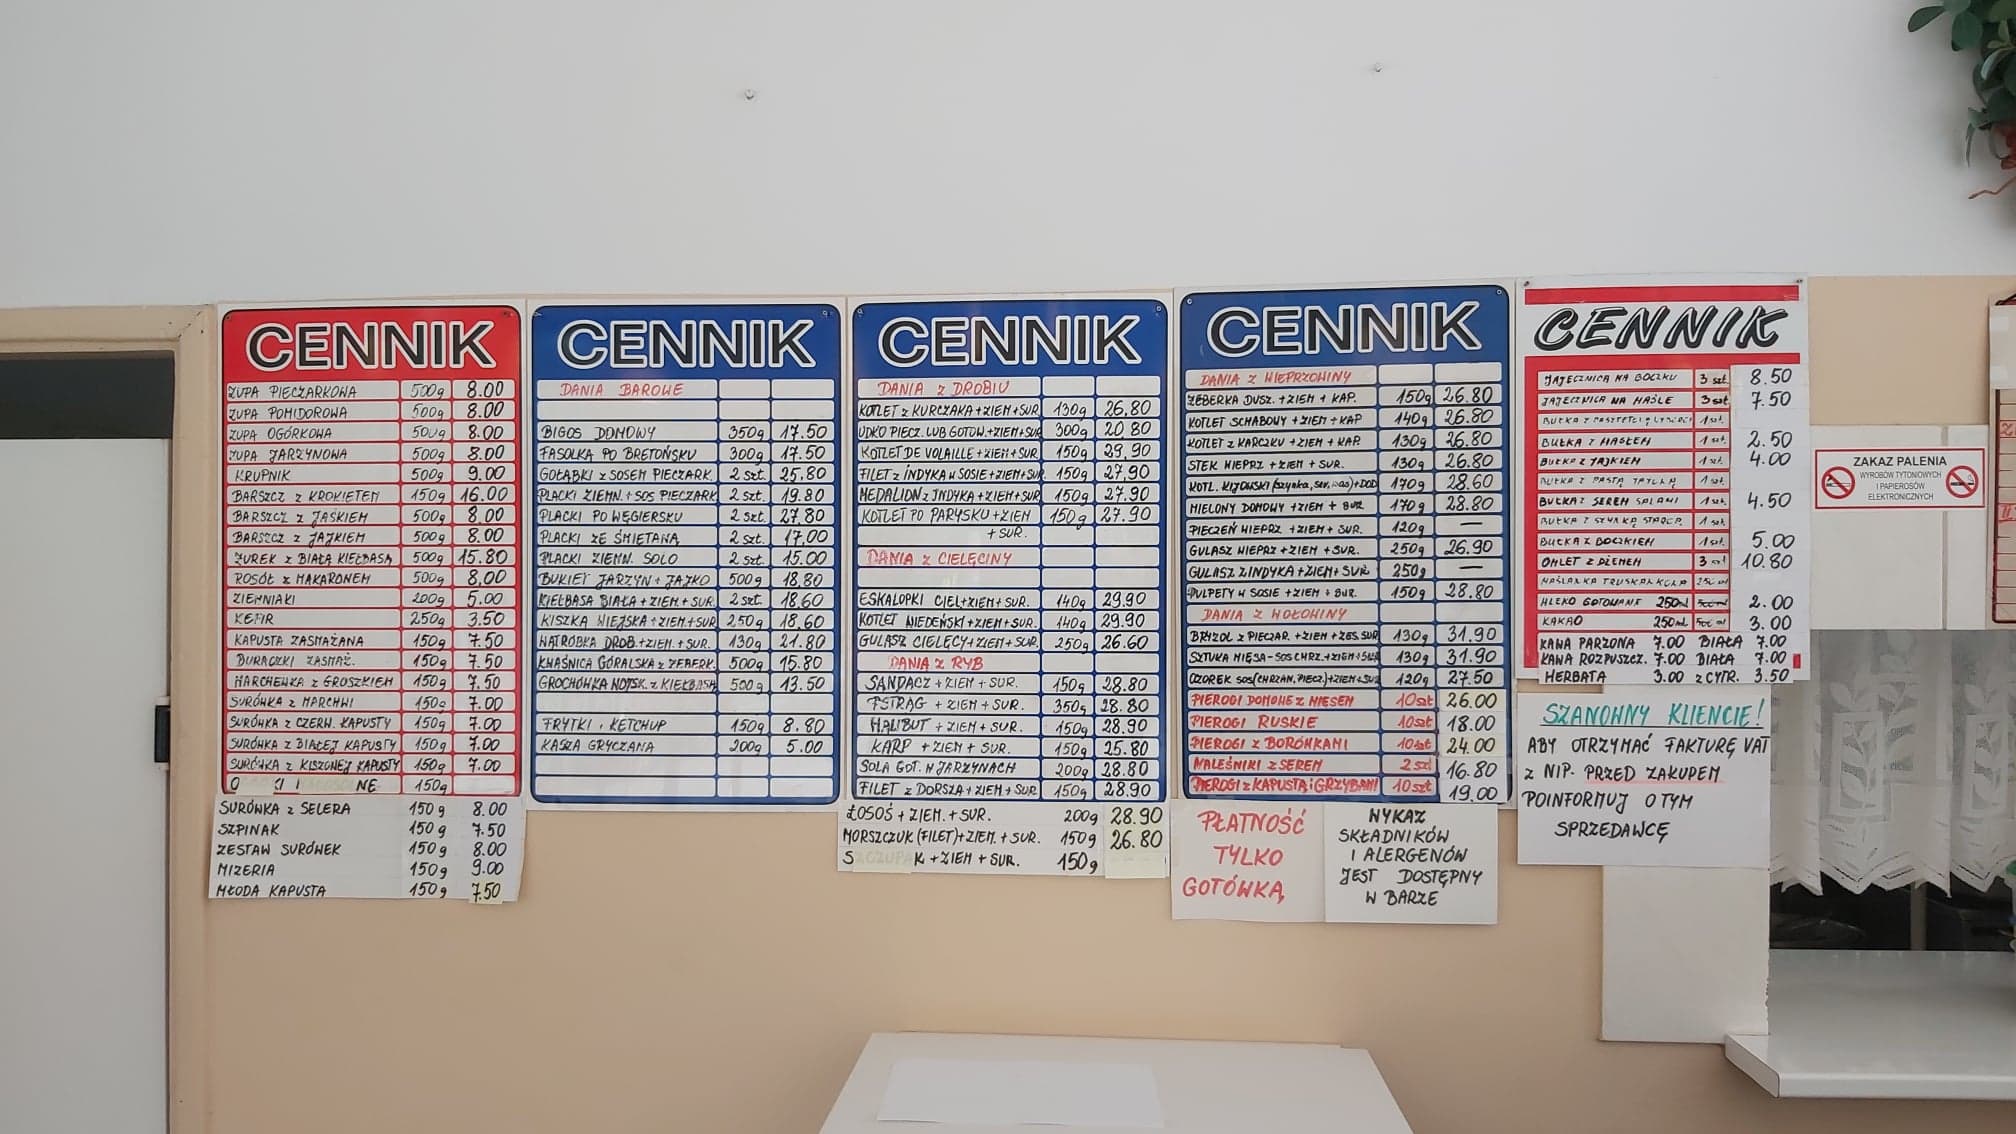 CENNIK
ZUPA PIECZARKOWA 500g 8.00
ZUPA POMIDOROWA 500g 8.00
ZUPA OGÓRKOWA 500g 8.00
ZUPA JARZYNOWA 500g 8.00
KRUPNIK 500g 9.00
BARSZCZ z KROKIETEM 150g 16.00
BARSZCZ z JAŚKIEM 500g 8.00
BARSZCZ z JAJKIEM 500g 8.00
ŻUREK z BIAŁĄ KIEŁBASĄ 500g 15.80
ROSÓŁ z MAKARONEM 500g 8.00
ZIEMNIAKI 200g 5.00
KEFIR 250g 3.50
KAPUSTA ZASMAŻANA 150g 7.50
BURACZKI ZASMAŻ. 150g 7.50
MARCHEWKA z GROSZKIEM 150g 7.50
SURÓWKA z MARCHWI 150g 7.00
SURÓWKA z CZERW. KAPUSTY 150g 7.00
SURÓWKA z BIAŁEJ KAPUSTY 150g 7.00
SURÓWKA z KISZONEJ KAPUSTY 150g 7.00
150g
SURÓWKA z SELERA 150g 8.00
SZPINAK 150g 7.50
ZESTAW SURÓWEK 150g 8.00
MIZERIA 150g 9.00
MŁODA KAPUSTA 150g 7.50
CENNIK
DANIA BAROWE
BIGOS DOMOWY 350g 17.50
FASOLKA PO BRETOŃSKU 300g 17.50
GOŁĄBKI z SOSEM PIECZARK. 2 szt. 25.80
PLACKI ZIEMN. + SOS PIECZARK. 2 szt. 19.80
PLACKI PO WĘGIERSKU 2 szt. 27.80
PLACKI ZE ŚMIETANĄ 2 szt. 17.00
PLACKI ZIEMN. SOLO 2 szt. 15.00
BUKIET JARZYN + JAJKO 500g 18.80
KIEŁBASA BIAŁA + ZIEM. + SUR. 2 szt. 18.60
KISZKA WIEJSKA + ZIEM. + SUR. 250g 18.60
WĄTRÓBKA DROB. + ZIEM. + SUR. 130g 21.80
KWAŚNICA GÓRALSKA z ŻEBERK. 500g 15.80
GROCHÓWKA WOJSK. z KIEŁBASĄ 500g 13.50
FRYTKI, KETCHUP 150g 8.80
KASZA GRYCZANA 200g 5.00
CENNIK
DANIA z DROBIU
KOTLET z KURCZAKA + ZIEM + SUR. 130g 26.80
UDKO PIECZ. LUB GOTOW. + ZIEM + SUR 300g 20.80
KOTLET DE VOLAILLE + ZIEM + SUR. 150g 29.90
FILET z INDYKA W SOSIE + ZIEM + SUR 150g 27.90
MEDALION z INDYKA + ZIEM + SUR 150g 27.90
KOTLET PO PARYSKU + ZIEM 150g 27.90
+ SUR.
DANIA z CIELĘCINY
ESKALOPKI CIEL + ZIEM + SUR. 140g 29.90
KOTLET WIEDEŃSKI + ZIEM + SUR. 140g 29.90
GULASZ CIELĘCY + ZIEM + SUR. 250g 26.60
DANIA z RYB
SANDACZ + ZIEM + SUR. 150g 28.80
PSTRĄG + ZIEM + SUR. 350g 28.80
HALIBUT + ZIEM + SUR. 150g 28.90
KARP + ZIEM + SUR. 150g 25.80
SOLA GOT. W JARZYNACH 200g 28.80
FILET z DORSZA + ZIEM + SUR. 150g 28.90
ŁOSOŚ + ZIEM. + SUR. 200g 28.90
MORSZCZUK (FILET) + ZIEM. + SUR. 150g 26.80
SZCZUPAK + ZIEM + SUR. 150g
CENNIK
DANIA z WIEPRZOWINY
ŻEBERKA DUSZ. + ZIEM + KAP. 150g 26.80
KOTLET SCHABOWY + ZIEM + KAP 140g 26.80
KOTLET z KARCZKU + ZIEM + KAP. 130g 26.80
STEK WIEPRZ + ZIEM + SUR. 130g 26.80
KOTL. KIJOWSKI (szynka, ser, ) + DOD 170g 28.60
MIELONY DOMOWY + ZIEM + SUR 170g 28.80
PIECZEŃ WIEPRZ + ZIEM + SUR. 120g —
GULASZ WIEPRZ + ZIEM + SUR. 250g 26.90
GULASZ Z INDYKA + ZIEM + SUR 250g —
PULPETY W SOSIE + ZIEM + SUR. 150g 28.80
DANIA z WOŁOWINY
BRYZOL z PIECZAR. + ZIEM + ZES. SUR 130g 31.90
SZTUKA MIĘSA - SOS CHRZ. + ZIEM + SUR 130g 31.90
OZOREK SOS (CHRZAN, PIECZ.) + ZIEM + SUR 120g 27.50
PIEROGI DOMOWE z MIĘSEM 10szt 26.00
PIEROGI RUSKIE 10szt 18.00
PIEROGI z BORÓWKAMI 10szt 24.00
NALEŚNIKI z SEREM 2 szt 16.80
PIEROGI z KAPUSTĄ i GRZYBAMI 10szt 19.00
PŁATNOŚĆ
TYLKO
GOTÓWKĄ
WYKAZ
SKŁADNIKÓW
I ALERGENÓW
JEST DOSTĘPNY
W BARZE
CENNIK
JAJECZNICA NA BOCZKU 3 szt. 8.50
JAJECZNICA NA MAŚLE 3 szt 7.50
BUŁKA z 1 szt.
BUŁKA z MASŁEM 1 szt. 2.50
BUŁKA z JAJKIEM 1 szt. 4.00
BUŁKA z PASTĄ 1 szt.
BUŁKA z SEREM SALAMI 1 szt. 4.50
BUŁKA z SZYNKĄ 1 szt.
BUŁKA z BOCZKIEM 1 szt. 5.00
OMLET z DŻEMEM 3 szt 10.80
MAŚLANKA TRUSKAWKOWA 250 ml
MLEKO GOTOWANE 250ml 500 ml 2.00
KAKAO 250ml 500 ml 3.00
KAWA PARZONA 7.00 BIAŁA 7.00
KAWA ROZPUSZCZ. 7.00 BIAŁA 7.00
HERBATA 3.00 z CYTR. 3.50
SZANOWNY KLIENCIE!
ABY OTRZYMAĆ FAKTURĘ VAT
z NIP. PRZED ZAKUPEM
POINFORMUJ O TYM
SPRZEDAWCĘ
ZAKAZ PALENIA
WYROBÓW TYTONIOWYCH
I PAPIEROSÓW
ELEKTRONICZNYCH